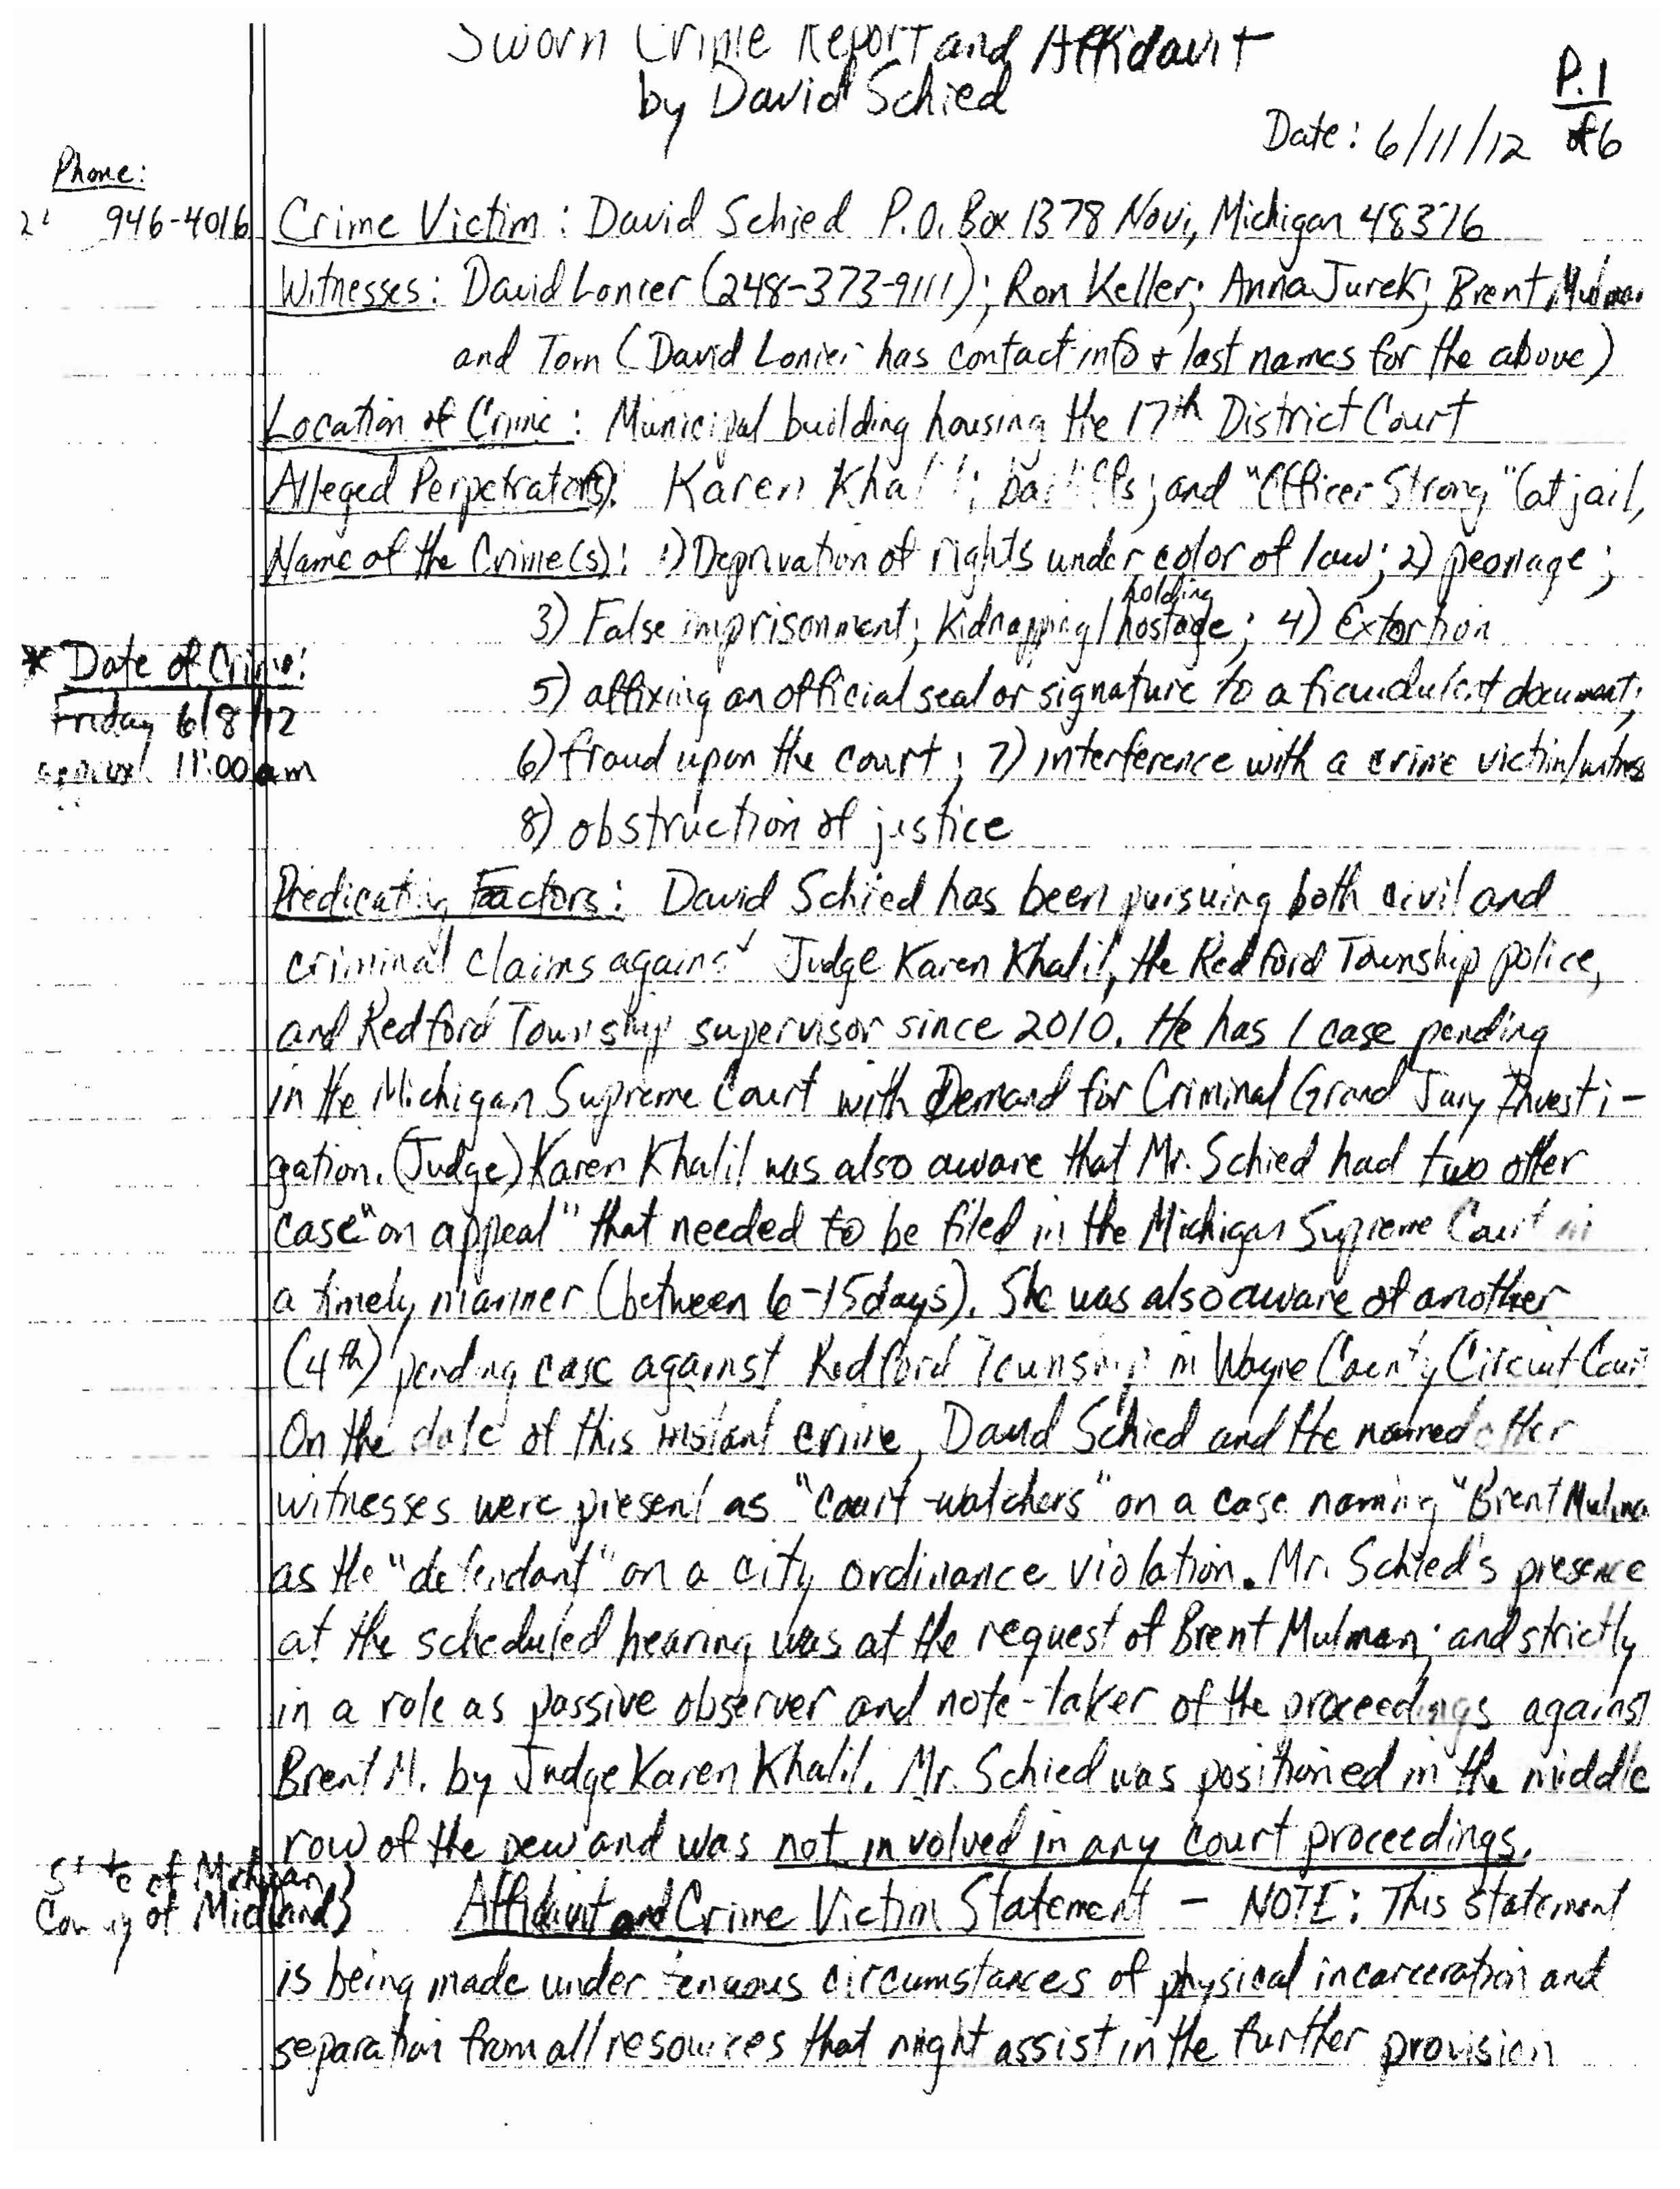 Sworn Crime Report and Affidavit
by David Schied
P.1
of 6
Date: 6/11/12
Phone:
946-4016
Crime Victim: David Schied P.O. Box 1378 Novi, Michigan 48376
Witnesses: David Lonier (248-373-9111); Ron Keller; Anna Jurek; Brent Mulman
and Tom (David Lonier has contact info + last names for the above)
Location of Crime: Municipal building housing the 17th District Court
Alleged Perpetrator(s): Karen Khalil; bailiffs; and "Officer Strong" (at jail,
Name of the Crime(s): 1) Deprivation of rights under color of law; 2) peonage;
3) False imprisonment; Kidnapping/holding hostage; 4) Extortion
* Date of Crime:
Friday 6/8/12
approx. 11:00 am
5) affixing an official seal or signature to a fraudulent document;
6) fraud upon the court; 7) interference with a crime victim/witness
8) obstruction of justice
Predicating Factors: David Schied has been pursuing both civil and
criminal claims against Judge Karen Khalil, the Redford Township police,
and Redford Township supervisor since 2010. He has 1 case pending
in the Michigan Supreme Court with Demand for Criminal Grand Jury Investi-
gation. (Judge) Karen Khalil was also aware that Mr. Schied had two other
case "on appeal" that needed to be filed in the Michigan Supreme Court in
a timely manner (between 6-15 days). She was also aware of another
(4th) pending case against Redford Township in Wayne County Circuit Court
On the date of this instant crime, David Schied and the named other
witnesses were present as "court-watchers" on a case naming "Brent Mulman
as the "defendant" on a city ordinance violation. Mr. Schied's presence
at the scheduled hearing was at the request of Brent Mulman; and strictly
in a role as passive observer and note-taker of the proceedings against
Brent M. by Judge Karen Khalil. Mr. Schied was positioned in the middle
row of the pew and was not involved in any court proceedings.
State of Michigan}
County of Midland}
Affidavit and Crime Victim Statement - NOTE: This statement
is being made under tenuous circumstances of physical incarceration and
separation from all resources that might assist in the further provision